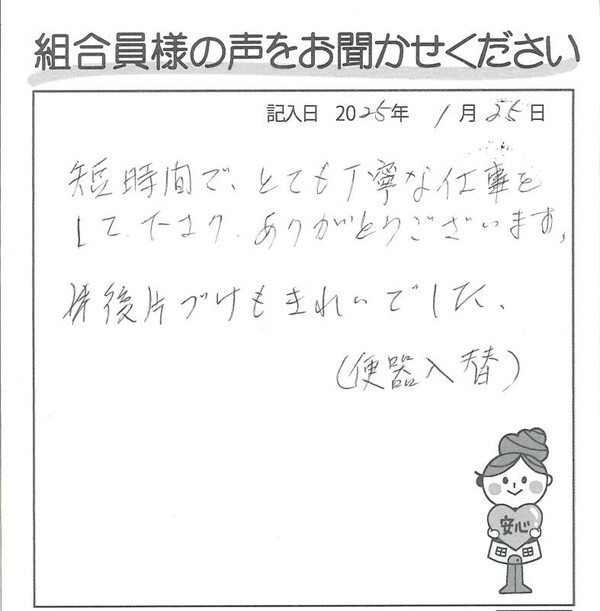 組合員様の声をお聞かせください
記入日 2025年 1月25日
短時間で、とても丁寧な仕事を
して、下さり、ありがとうございます。
後片づけもきれいでした、
(便器入替)
安心